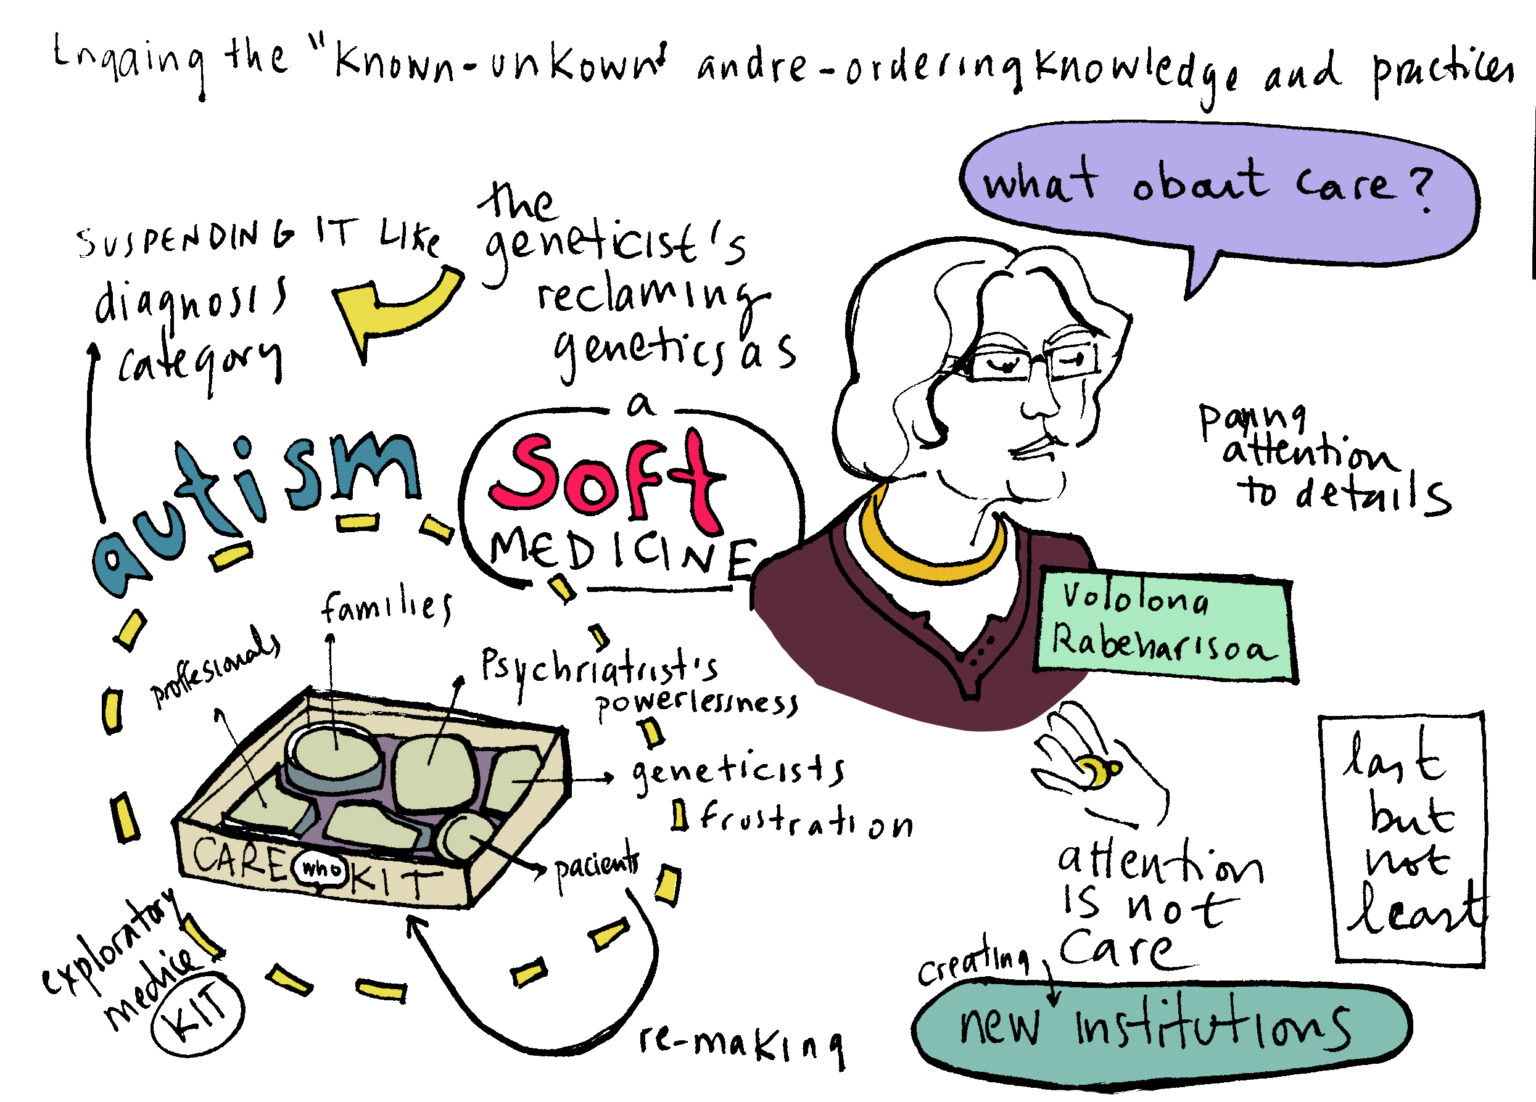 Engaing the "known-unkown" and re-ordering knowledge and practices
what about care?
SUSPENDING IT LIKE
diagnosis
category
the
geneticist's
reclaming
genetics as
a
Soft
MEDICINE
autism
paying
attention
to details
Vololona
Rabeharisoa
families
proffesionals
Psychriatrist's
powerlessness
geneticists
frustration
pacients
CARE who KIT
exploratory
medice
KIT
re-making
attention
IS not
care
creating
new institutions
last
but
not
least